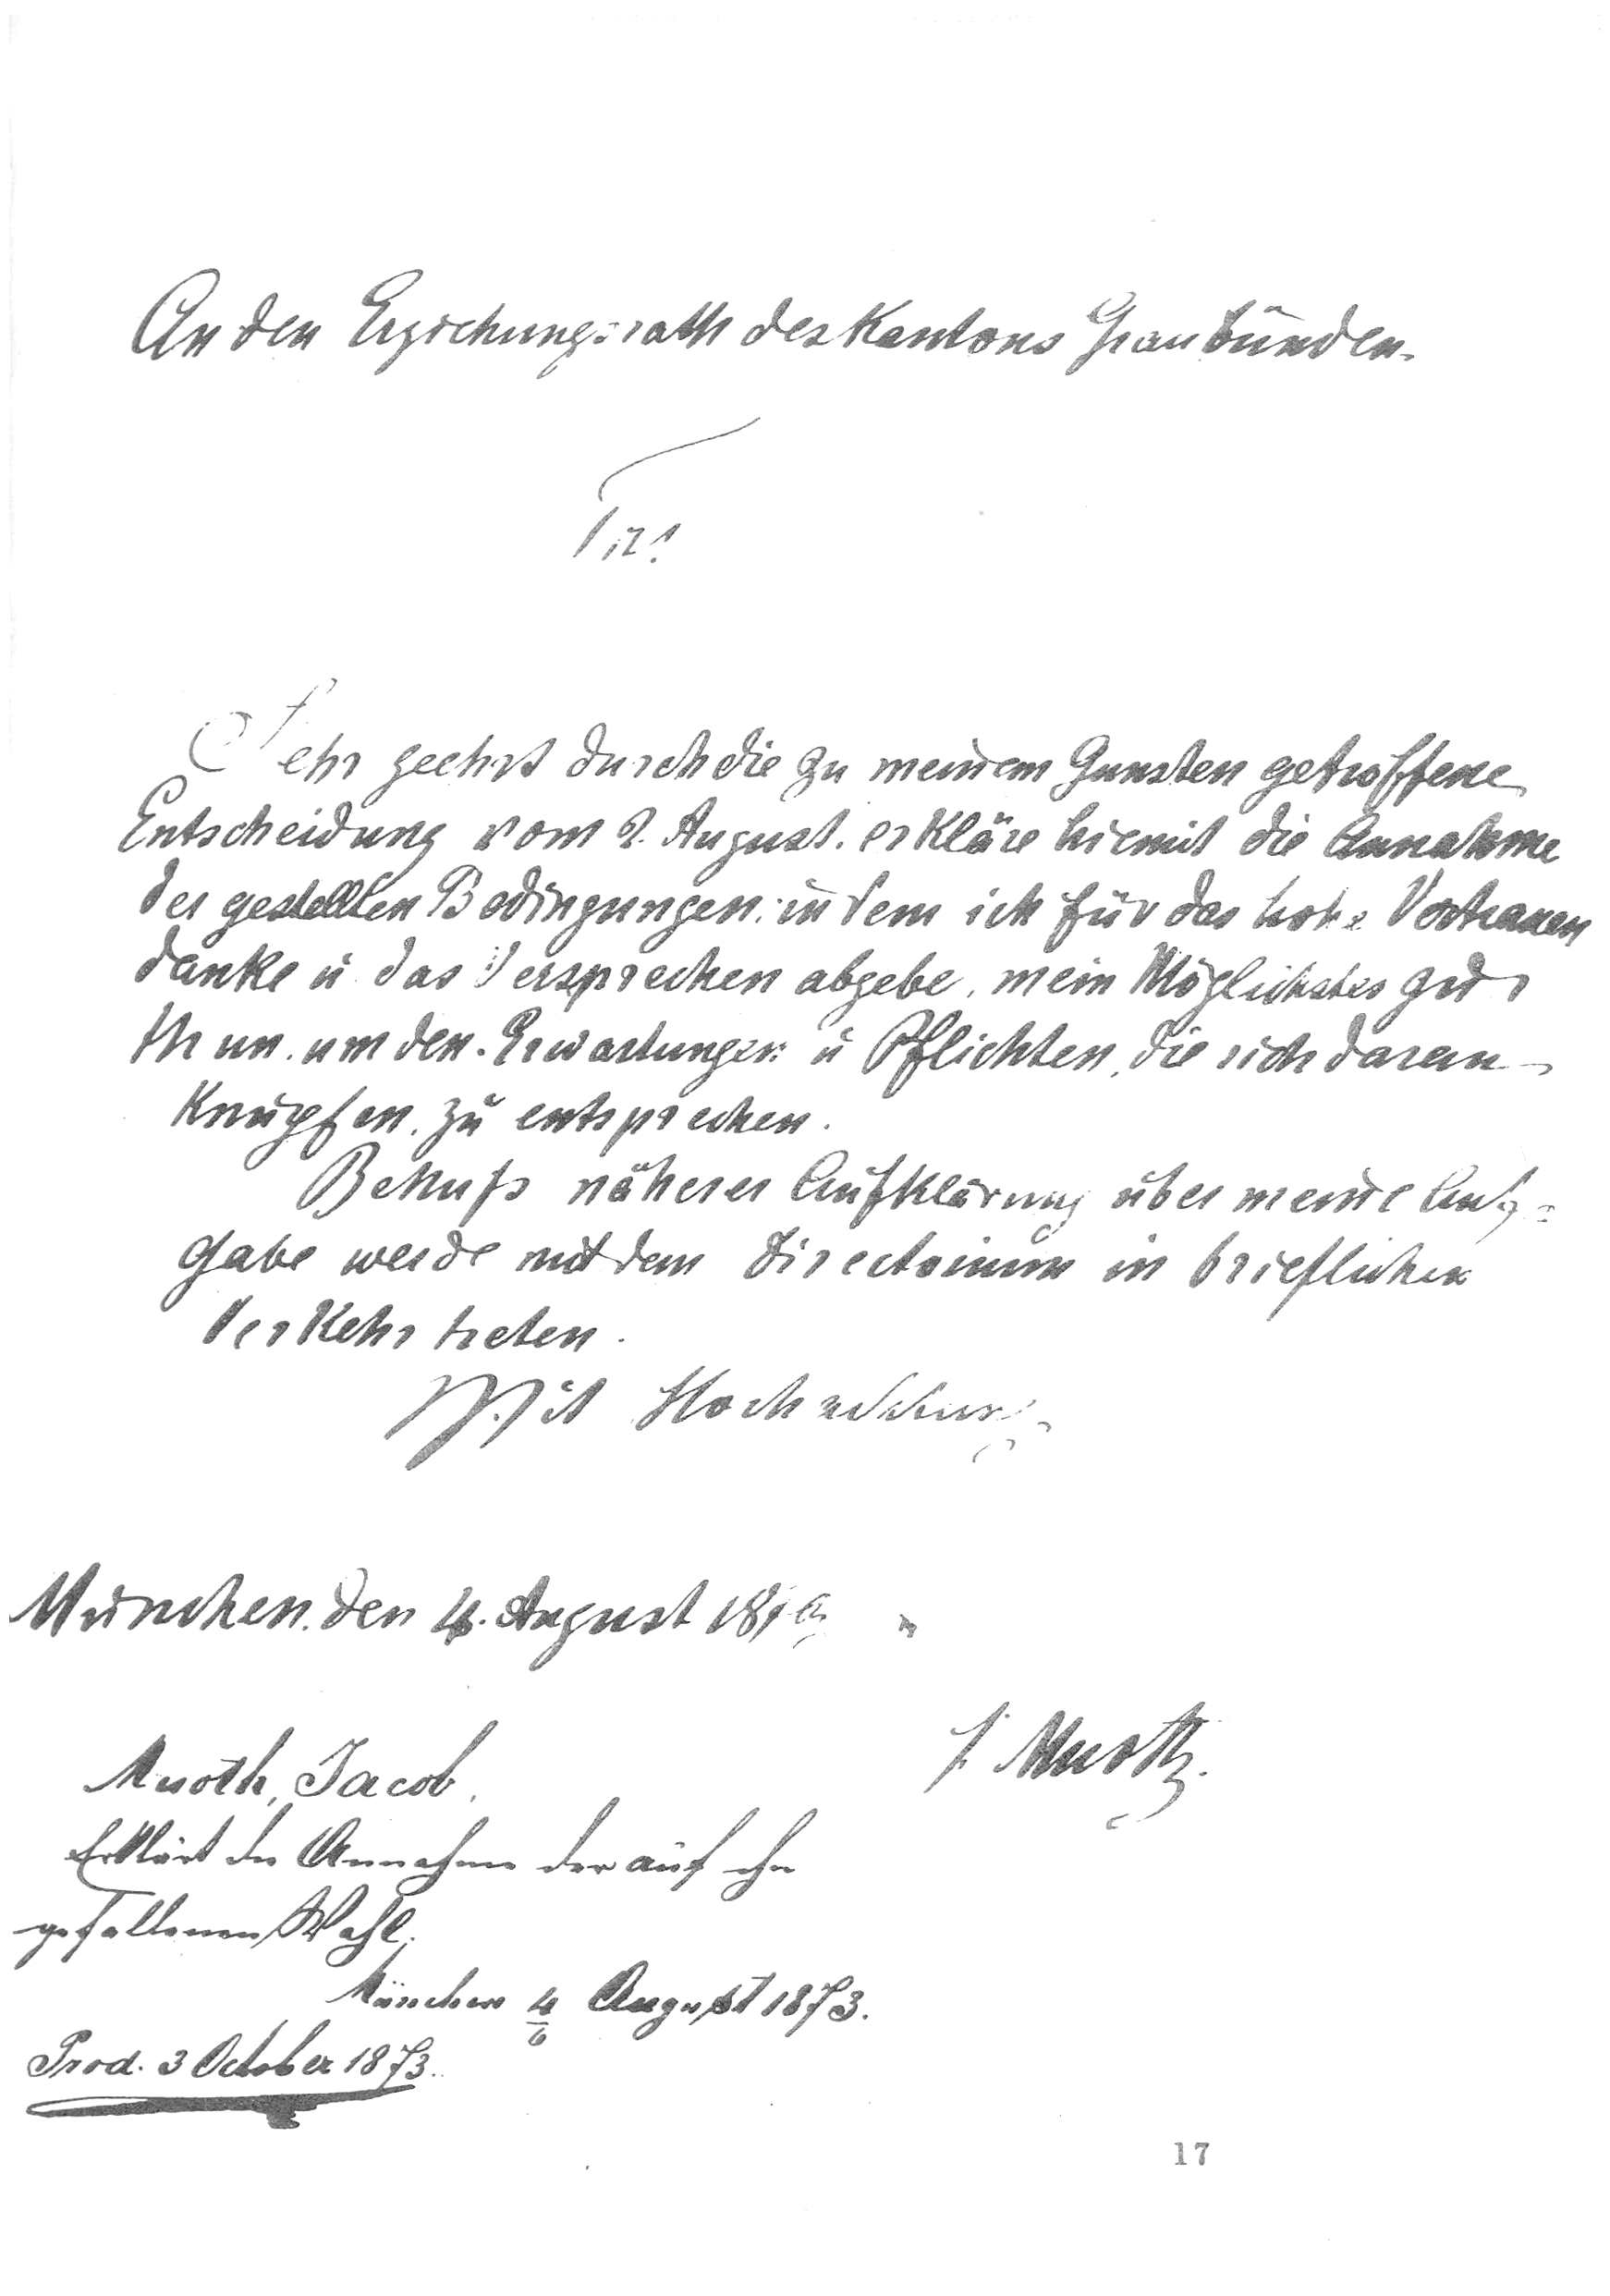 An den Erziehungsrath des Kantons Graubünden.
Tit!
Sehr geehrt durch die zu meinem Gunsten getroffene
Entscheidung vom 2. August. erkläre hiemit die Annahme
der gestellten Bedingungen; indem ich für das hohe Vertrauen
danke u das Versprechen abgebe, mein Möglichstes zu
thun, um den Erwartungen u Pflichten, die sich daran
knüpfen, zu entsprechen.
Behufs näherer Aufklärung über meine Auf=
gabe werde mit dem Directorium in brieflichen
Verkehr treten.
Mit Hochachtung
München, den 4. August
J. Muoth.
Muoth, Jacob,
Erklärt die Annahme der auf ihn
gefallenen Wahl.
München 4/6 August 1873.
Prod. 3 October 1873.
17